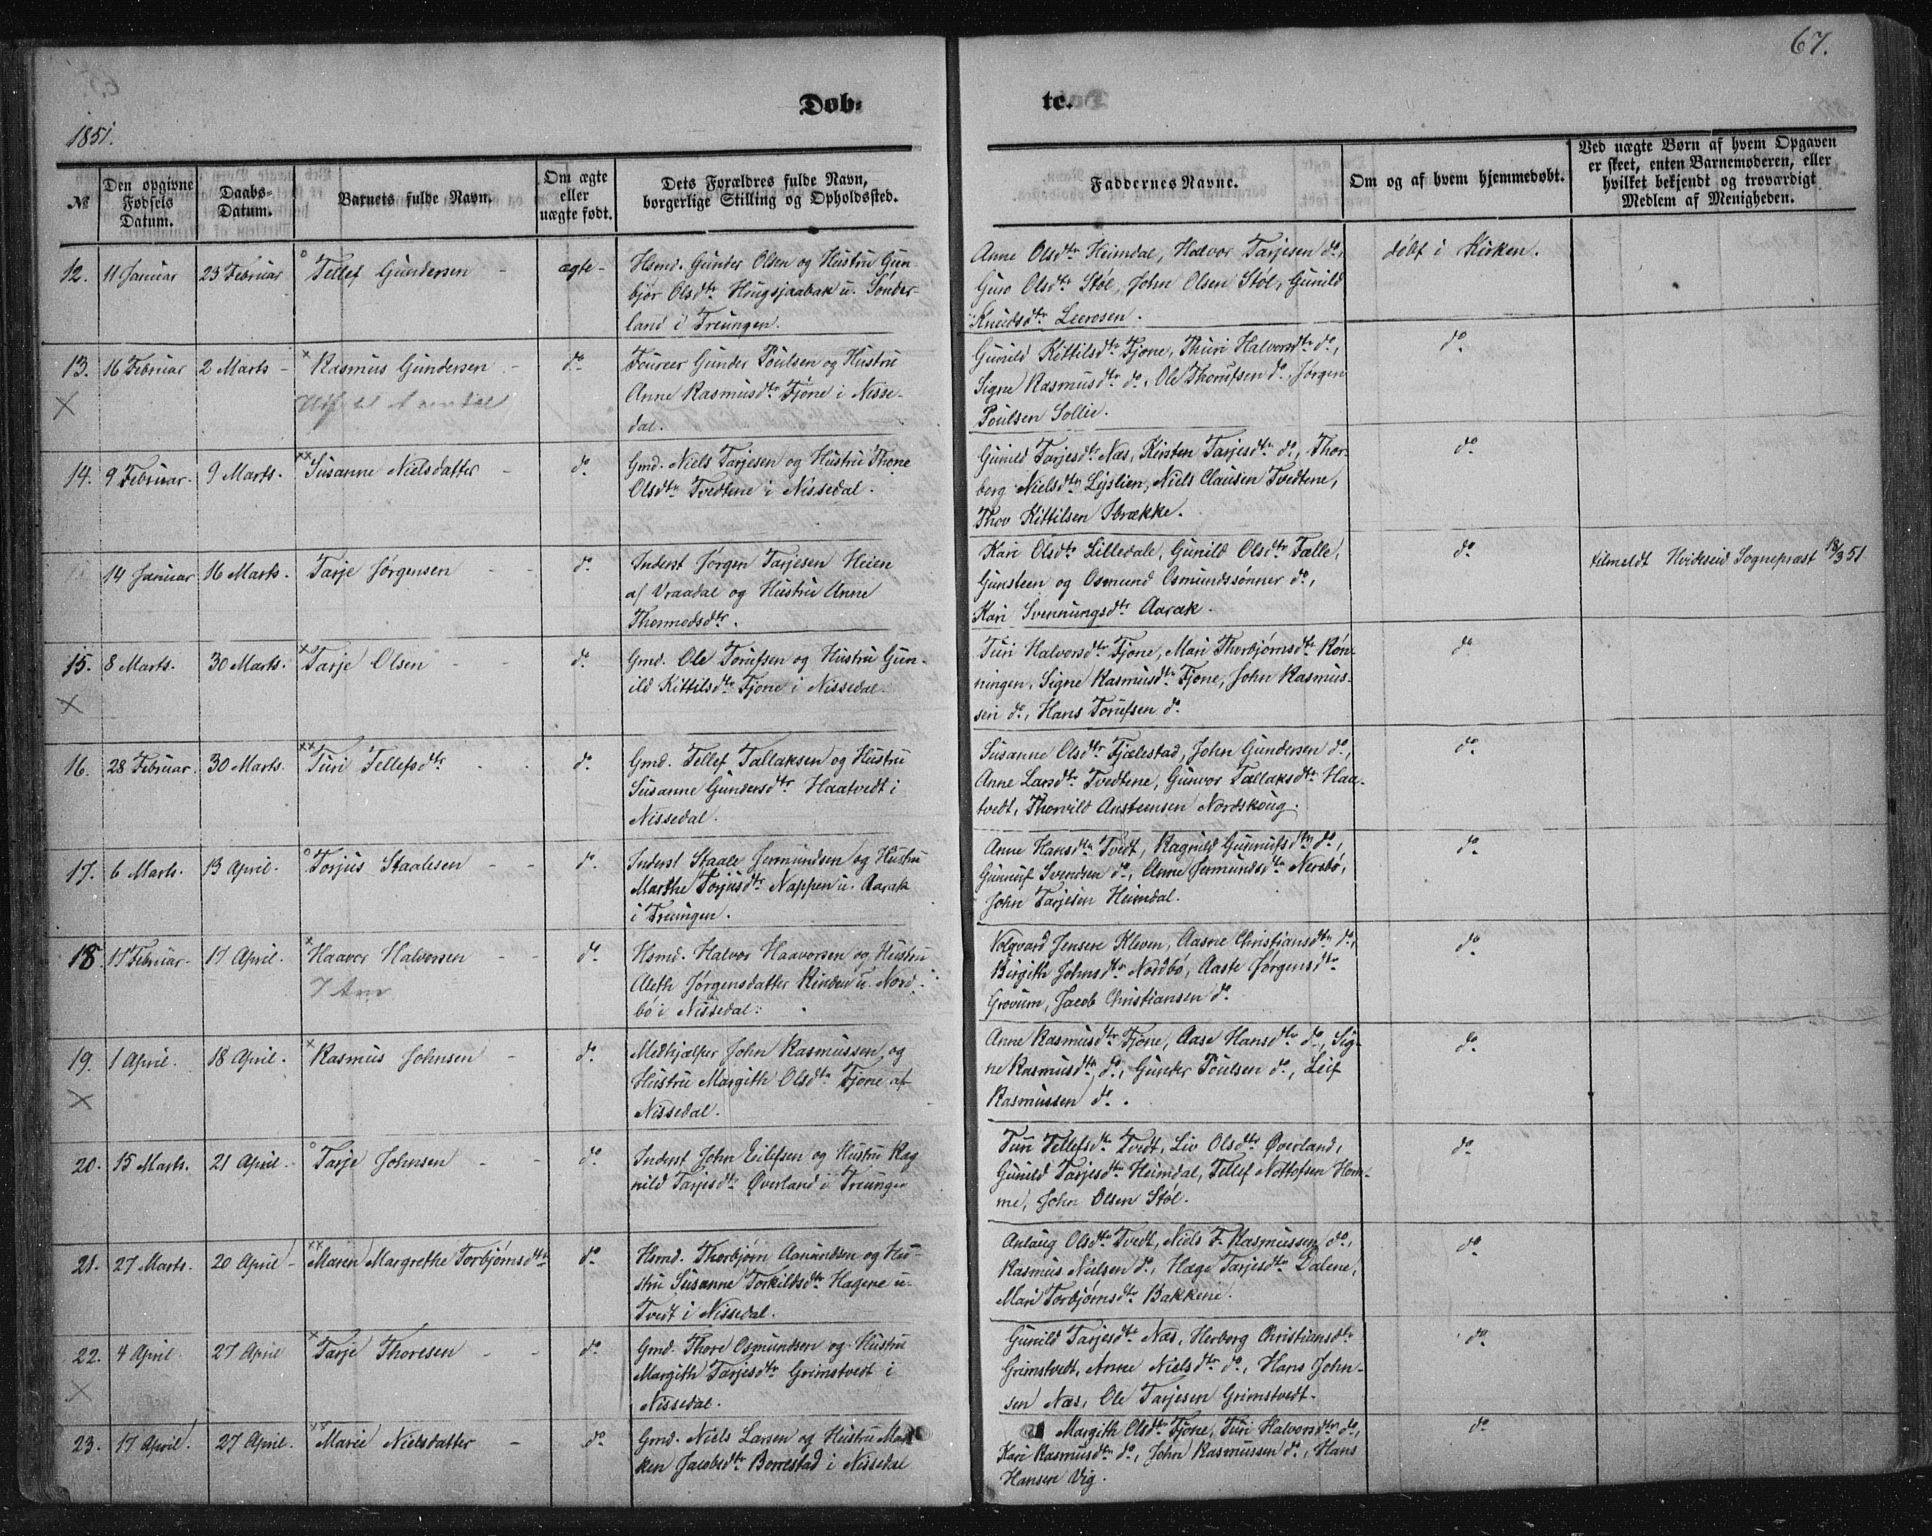 67.
Døb-
te.
1851.
№
Den opgivne Fødsels Datum.
Daabs-Datum.
Barnets fulde Navn.
Om ægte eller uægte født.
Dets Forældres fulde Navn, borgerlige Stilling og Opholdssted.
Faddernes Navne.
Om og af hvem hjemmedøbt.
Ved uægte Børn af hvem Opgaven er skeet, enten Barnemoderen, eller hvilket bekjendt og troværdigt Medlem af Menigheden.
12. 11 Januar 23 Februar Tellef Gundersen - ægte-
Hsmd. Gunder Olsen og Hustru Gun-
bjør Olsdtr Hugsjaabak u. Sønder-
land i Treungen.
Anne Olsdtr Heimdal, Halvor Tarjesen do,
Guro Olsdtr Støl, John Olsen Støl, Gunild
Knudsdtr Leerosen.
døbt i Kirken.
13. 16 Februar 2 Marts - × Rasmus Gundersen - do
×
Foureer Gunder Poulsen og Hustru
Anne Rasmusdtr Fjone i Nisse-
dal.
Gunild Kittilsdtr Fjone, Thuri Halvorsdtr do,
Signe Rasmusdtr do, Ole Thorufsen do, Jørgen
Poulsen Sollie.
do
14. 9 Februar. 9 Marts. ×× Susanne Nielsdatter - do
Gmd. Niels Tarjesen og Hustru Thone
Olsdtr Tvedtene i Nissedal.
Gunild Tarjesdtr Næs, Kirsten Tarjesdtr do, Thor-
berg Nielsdtr Lyslien, Niels Clausen Tvedtene,
Thov Kittilsen Brække.
do
14 Januar 16 Marts. Tarje Jørgensen - do
Inderst Jørgen Tarjesen Heien
af Vraadal og Hustru Anne
Thormodsdtr.
Kari Olsdtr Lilledale, Gunild Olsdtr Talle,
Gunsteen og Osmund Osmundssønner do,
Kari Svennungsdtr Aarak.
do
tilmeldt Hvideseid Sognepræst 18/3 51
15. 8 Marts. 30 Marts. Tarje Olsen - do
×
Gmd. Ole Torufsen og Hustru Gun-
ild Kittilsdtr Fjone i Nissedal.
Turi Halvorsdtr Fjone, Mari Thorbjørnsdtr Røn-
ningen, Signe Rasmusdtr Fjone, John Rasmus-
sen do, Hans Torufsen do
do
16. 28 Februar. 30 Marts. ×× Turi Tellefsdtr - do
Gmd. Tellef Tallaksen og Hustru
Susanne Gundersdtr Haatvedt i
Nissedal.
Susanne Olsdtr Fjælestad, John Gundersen do,
Anne Larsdtr Tvedtene, Gunvor Tallaksdtr Haa-
tvedt, Thorvild Anstensen Nordskoug.
do
17. 6 Marts. 13 April. Torjus Staalesen - do
Inderst Staale Jermundsen og Hustru
Marthe Torjusdtr Nappen u. Aarak
i Treungen.
Anne Hansdtr Tvedt, Ragnild Gunnufsdtr do,
Gunnuf Svendsen do, Anne Jermundsdtr Nersbø,
John Tarjesen Heimdal.
do
18. 17 Februar. 17 April. × Haavor Halvorsen - do
Hsmd. Halvor Haavorsen og Hustru
Aleth Jørgensdatter Rinden u. Nord-
bø i Nissedal.
Volqvard Jensen Kleven, Aasne Christiansdtr do,
Birgith Johnsdtr Nordbø, Aaste Jørgensdtr
Grovum, Jacob Christiansen do
do
19. 1 April. 18 April. × Rasmus Johnsen - do
×
Medhjælper John Rasmussen og
Hustru Margith Olsdtr Fjone af
Nissedal.
Anne Rasmusdtr Fjone, Aase Hansdtr do, Sig-
ne Rasmusdtr do, Gunder Poulsen do, Leif
Rasmussen do.
do
20. 15 Marts. 21 April. Tarje Johnsen - do
Inderst John Eilefsen og Hustru Rag
nild Tarjesdtr Øverland i Treungen
Turi Tellefsdtr Tvedt, Liv Olsdtr Øverland,
Gunild Tarjesdtr Heimdal, Tellef Nottofsen Hom-
me, John Olsen Støl.
do
21. 27 Marts. 20 April - ×× Maren Margrethe Torbjørnsdtr do
Hsmd. Thorbjørn Aamundsen og Hu-
stru Susanne Torkildsdtr Hagene u.
Tvedt i Nissedal.
Anlaug Olsdtr Tvedt, Niels F. Rasmussen do,
Rasmus Nielsen do, Hæge Tarjesdtr Dalene,
Mari Torbjørnsdtr Bakkene.
do
22. 4 April. 27 April × Tarje Thoresen - do
×
Gmd. Thore Osmundsen og Hustru
Margith Tarjesdtr Grimstvedt i
Nissedal.
Gunild Tarjesdtr Næs, Herborg Christiansdtr
Grimstvedt, Anne Nielsdtr do, Hans John-
sen Næs, Ole Tarjesen Grimstvedt.
do
23. 17 April. 27 April. Marie Nielsdatter - do
Gmd. Niels Larsen og Hustru Ma
ken Jacobsdtr Borrestad i Nissedal
Margith Olsdtr Fjone, Turi Halvorsdtr do,
Kari Rasmusdtr do, John Rasmussen do, Hans
Hansen Vig.
do